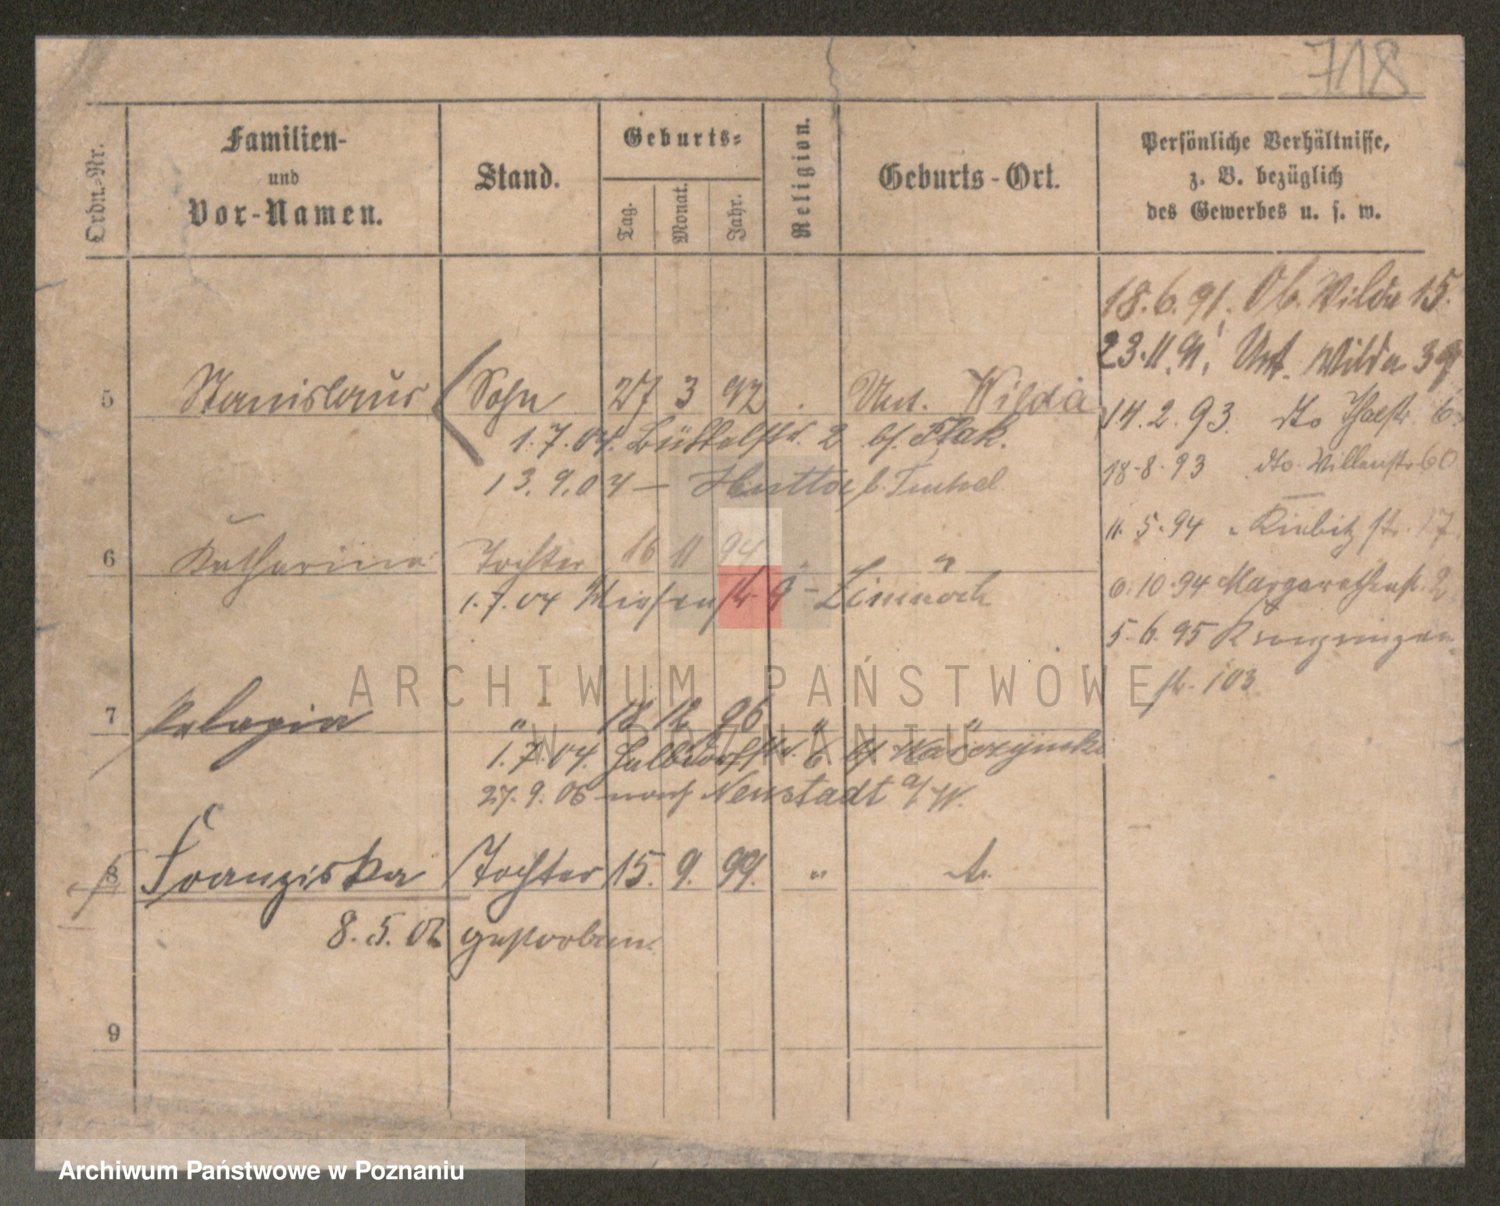 718
Ordn.-Nr.
Familien-
und
Vor-Namen.
Stand.
Geburts-
Tag.
Monat.
Jahr.
Religion.
Geburts-Ort.
Persönliche Verhältnisse,
z. B. bezüglich
des Gewerbes u. s. w.
18.6.91. Ob. Wilda 15.
23.11.91. Unt. Wilda 39
5 Stanislaus Sohn 27 3 92 . Unt. Wilda
14.2.93. dto Thalstr. 6.
1.7.04. Büttelstr. 2 b/.
18.8.93 dto.
13.9.04 —
11.5.94 " Kiebitzstr. 17
6 Katharina Tochter 16 11 94 " "
0.10.94 Margarethenstr. 2
1.7.04 Wiesenstr. 9 -
5.6.95 Kronprinzen
str. 103
7 Pelagia " 18 12 96 " "
1.7.04. Halbdorfstr. 6 b/
27.9.05 nach Neustadt a/W.
8 Franziska Tochter 15. 9. 99. "
8.5.02 gestorben.
9
ARCHIWUM PAŃSTWOWE
W POZNANIU
Archiwum Państwowe w Poznaniu